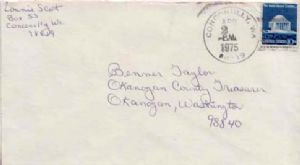 Lonnie Scot
Box 53
Conconully Wn.
98819
CONCONULLY, WA
APR
2
P.M.
1975
Benner Taylor
Okanogan County Treasurer
Okanogan, Washington
98840